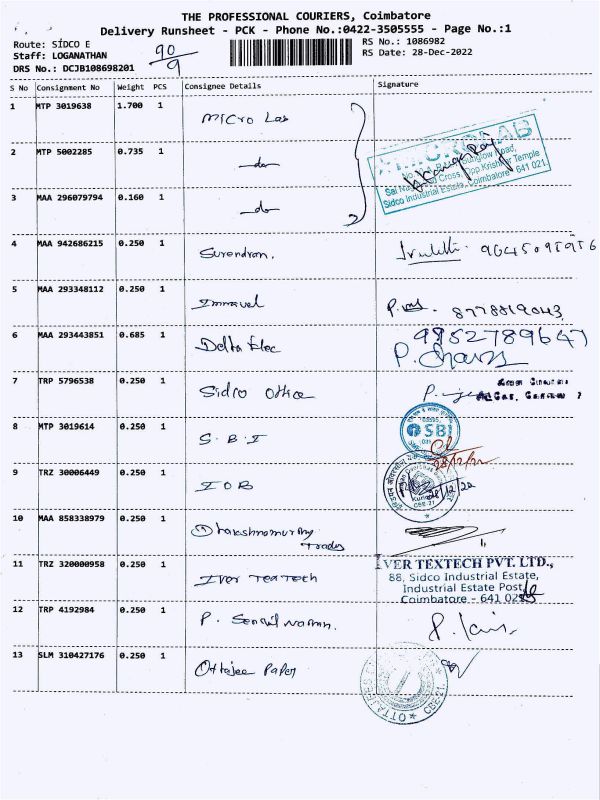 THE PROFESSIONAL COURIERS, Coimbatore
Delivery Runsheet - PCK - Phone No.:0422-3505555 - Page No.:1
Route: SÍDCO E
Staff: LOGANATHAN
DRS No.: DCJB108698201
90/9
RS No.: 1086982
RS Date: 28-Dec-2022
S No Consignment No Weight PCS Consignee Details Signature
1 MTP 3019638 1.700 1 Micro Lab
2 MTP 5002285 0.735 1 do
3 MAA 296079794 0.160 1 do
Sidco Industrial Estate, Coimbatore - 641 021
4 MAA 942686215 0.250 1 Surendran.
5 MAA 293348112 0.250 1 Immavel 8778819043
6 MAA 293443851 0.685 1 Delta Elec 9952789647
7 TRP 5796538 0.250 1 Sidco Office
8 MTP 3019614 0.250 1 S.B.I SBI
28/12/22
9 TRZ 30006449 0.250 1 IOB 28/12/22
CBE-21
10 MAA 858338979 0.250 1
11 TRZ 320000958 0.250 1 Iver Tex Tech
IVER TEXTECH PVT. LTD.,
88, Sidco Industrial Estate,
Industrial Estate Post,
Coimbatore - 641 021
12 TRP 4192984 0.250 1 P.
13 SLM 310427176 0.250 1 Ottajee Paper
OTTAJEE
CBE-21.